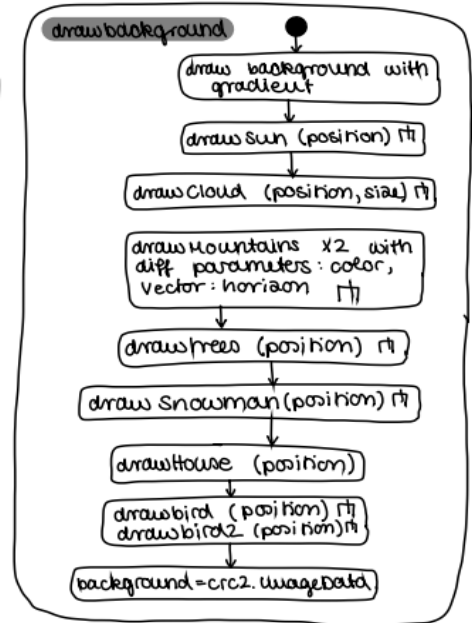 drawbackground
draw background with
gradient
drawSun (position)
drawCloud (position, size)
drawMountains x2 with
diff parameters: color,
vector: horizon
drawtrees (position)
draw Snowman (position)
drawHouse (position)
drawbird (position)
drawbird2 (position)
background=crc2.imageData